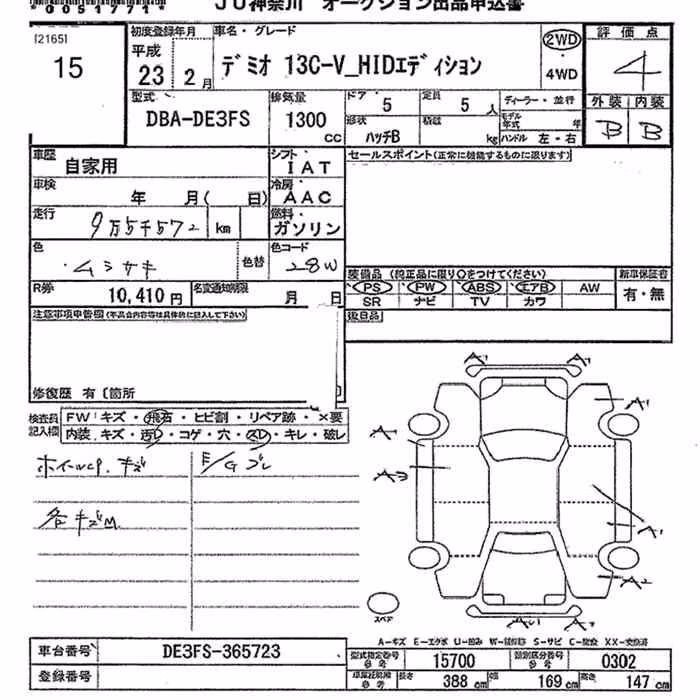 *0051771*
JU神奈川 オークション出品申込書
[2165]
15
初度登録年月
平成
23 2月
車名・グレード
デミオ 13C-V_HIDエディション
2WD
・
4WD
評価点
4
外装 内装
B B
型式
DBA-DE3FS
排気量
1300
CC
ドア
5
定員
5 人
形状
ハッチB
積載
kg
ディーラー・並行
モデル年式 年
ハンドル 左・右
車歴
自家用
シフト
IAT
セールスポイント(正常に機能するものに限ります)
車検
年 月( 日)
冷房
AAC
走行
9万5千572 km
燃料
ガソリン
色
ムラサキ
色替
色コード
28W
装備品 (純正品に限り○をつけてください)
新車保証書
PS PW ABS エアB AW
有・無
SR ナビ TV カワ
R券
10,410 円
名変通知期限
月 日
注意事項申告欄(不具合内容等は具体的に記入して下さい)
後日品
修復歴 有〔箇所
検査員記入欄
FW:キズ・飛石・ヒビ割・リペア跡・×要
内装:キズ・汚レ・コゲ・穴・スレ・キレ・破レ
ホイールcp.キズ
E/Gブレ
各キズM
A1
A1
A1
A3
A1
A2
スペア
A-キズ E-エクボ U-凹み W-補修跡 S-サビ C-腐食 XX-交換済
車台番号
DE3FS-365723
型式指定番号 参考
15700
類別区分番号 参考
0302
登録番号
車庫証明用 参考
長さ 388 cm
幅 169 cm
高さ 147 cm